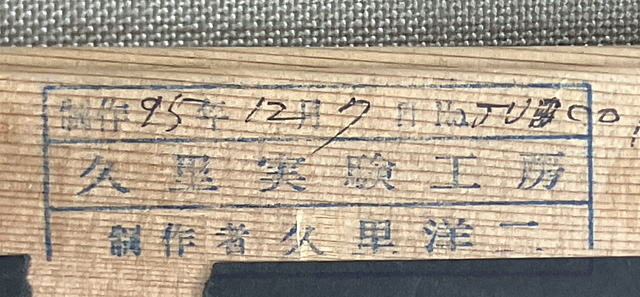 制作 95年 12月 7日 No.
久里実験工房
制作者 久里洋二